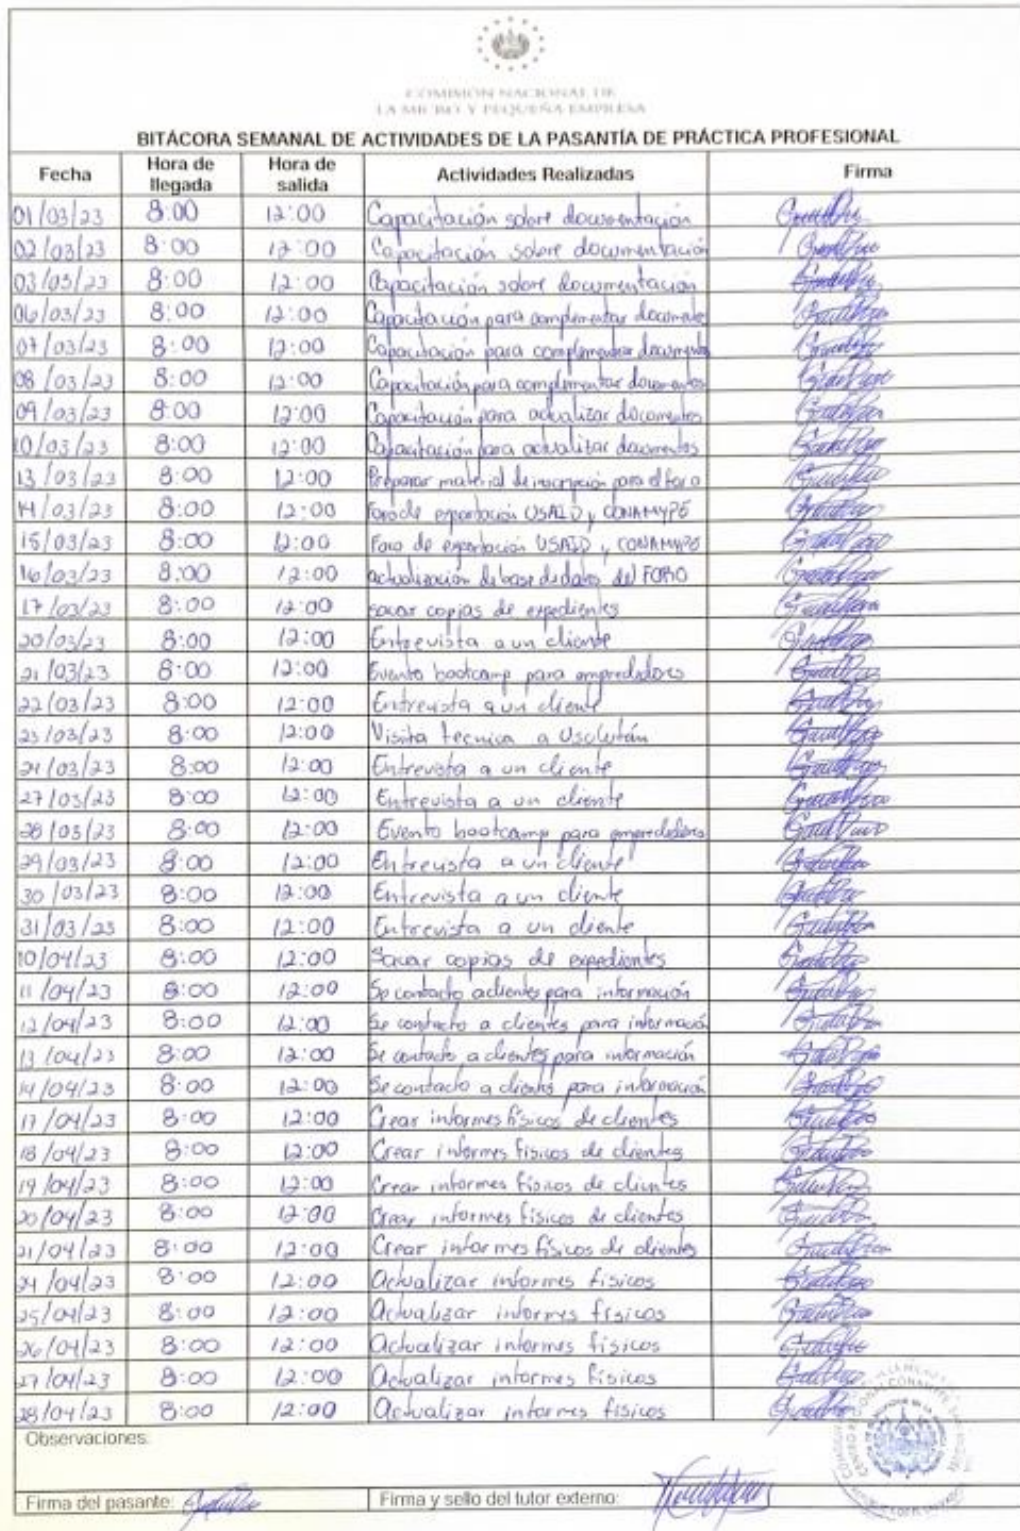 COMISIÓN NACIONAL DE
LA MICRO Y PEQUEÑA EMPRESA
BITÁCORA SEMANAL DE ACTIVIDADES DE LA PASANTÍA DE PRÁCTICA PROFESIONAL
Fecha Hora de llegada Hora de salida Actividades Realizadas Firma
01/03/23 8:00 12:00 Capacitación sobre documentación
02/03/23 8:00 12:00 Capacitación sobre documentación
03/03/23 8:00 12:00 Capacitación sobre documentación
06/03/23 8:00 12:00 Capacitación para complementar documento
07/03/23 8:00 12:00 Capacitación para complementar documento
08/03/23 8:00 12:00 Capacitación para complementar documentos
09/03/23 8:00 12:00 Capacitación para actualizar documentos
10/03/23 8:00 12:00 Capacitación para actualizar documentos
13/03/23 8:00 12:00 Preparar material de inscripción para el foro
14/03/23 8:00 12:00 Foro de exportación USAID y CONAMYPE
15/03/23 8:00 12:00 Foro de exportación USAID y CONAMYPE
16/03/23 8:00 12:00 actualización de base de datos del FORO
17/03/23 8:00 12:00 sacar copias de expedientes
20/03/23 8:00 12:00 Entrevista a un cliente
21/03/23 8:00 12:00 Evento bootcamp para emprededores
22/03/23 8:00 12:00 Entrevista a un cliente
23/03/23 8:00 12:00 Visita tecnica a Usulután
24/03/23 8:00 12:00 Entrevista a un cliente
27/03/23 8:00 12:00 Entrevista a un cliente
28/03/23 8:00 12:00 Evento bootcamp para empredededores
29/03/23 8:00 12:00 Entrevista a un cliente
30/03/23 8:00 12:00 Entrevista a un cliente
31/03/23 8:00 12:00 Entrevista a un cliente
10/04/23 8:00 12:00 Sacar copias de expedientes
11/04/23 8:00 12:00 Se contacto a clientes para información
12/04/23 8:00 12:00 Se contacto a clientes para información
13/04/23 8:00 12:00 Se contacto a clientes para información
14/04/23 8:00 12:00 Se contacto a clientes para información
17/04/23 8:00 12:00 Crear informes físicos de clientes
18/04/23 8:00 12:00 Crear informes físicos de clientes
19/04/23 8:00 12:00 Crear informes físicos de clientes
20/04/23 8:00 12:00 Crear informes físicos de clientes
21/04/23 8:00 12:00 Crear informes físicos de clientes
24/04/23 8:00 12:00 Actualizar informes físicos
25/04/23 8:00 12:00 Actualizar informes físicos
26/04/23 8:00 12:00 Actualizar informes físicos
27/04/23 8:00 12:00 Actualizar informes físicos
28/04/23 8:00 12:00 Actualizar informes físicos
Observaciones:
Firma del pasante: Firma y sello del tutor externo: